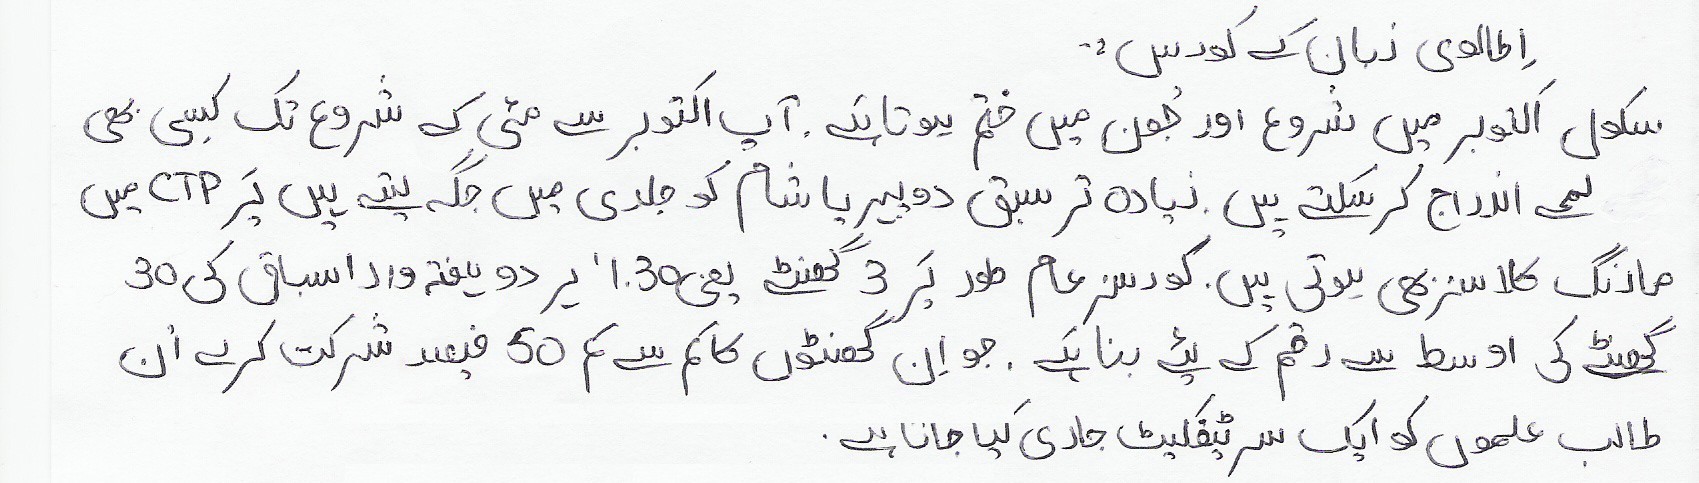 اِطالوی زبان کے کورس :-
سکول اکتوبر میں شروع اور جُون میں ختم ہوتا ہَے . آپ اکتوبر سے مئی کے شروع تک کِسی بھی
لمحے اندراج کر سَکتے ہیں . زیادہ تر سبق دوپہر یا شام کو جلدی میں جگہ لیتے ہیں پَر CTP میں
مارنگ کلاسز بھی ہوتی ہیں . کورسز عام طور پَر 3 گھنٹے یعنی 1.30' پر دو ہفتہ وار اسباق کی 30
گھنٹے کی اوسط سے رقم کے لئے بنا ہَے . جو اِن گھنٹوں کا کم سے کم 50 فیصد شرکت کرے اُن
طالب علموں کو ایک سرٹیفکیٹ جاری کیا جاتا ہے .